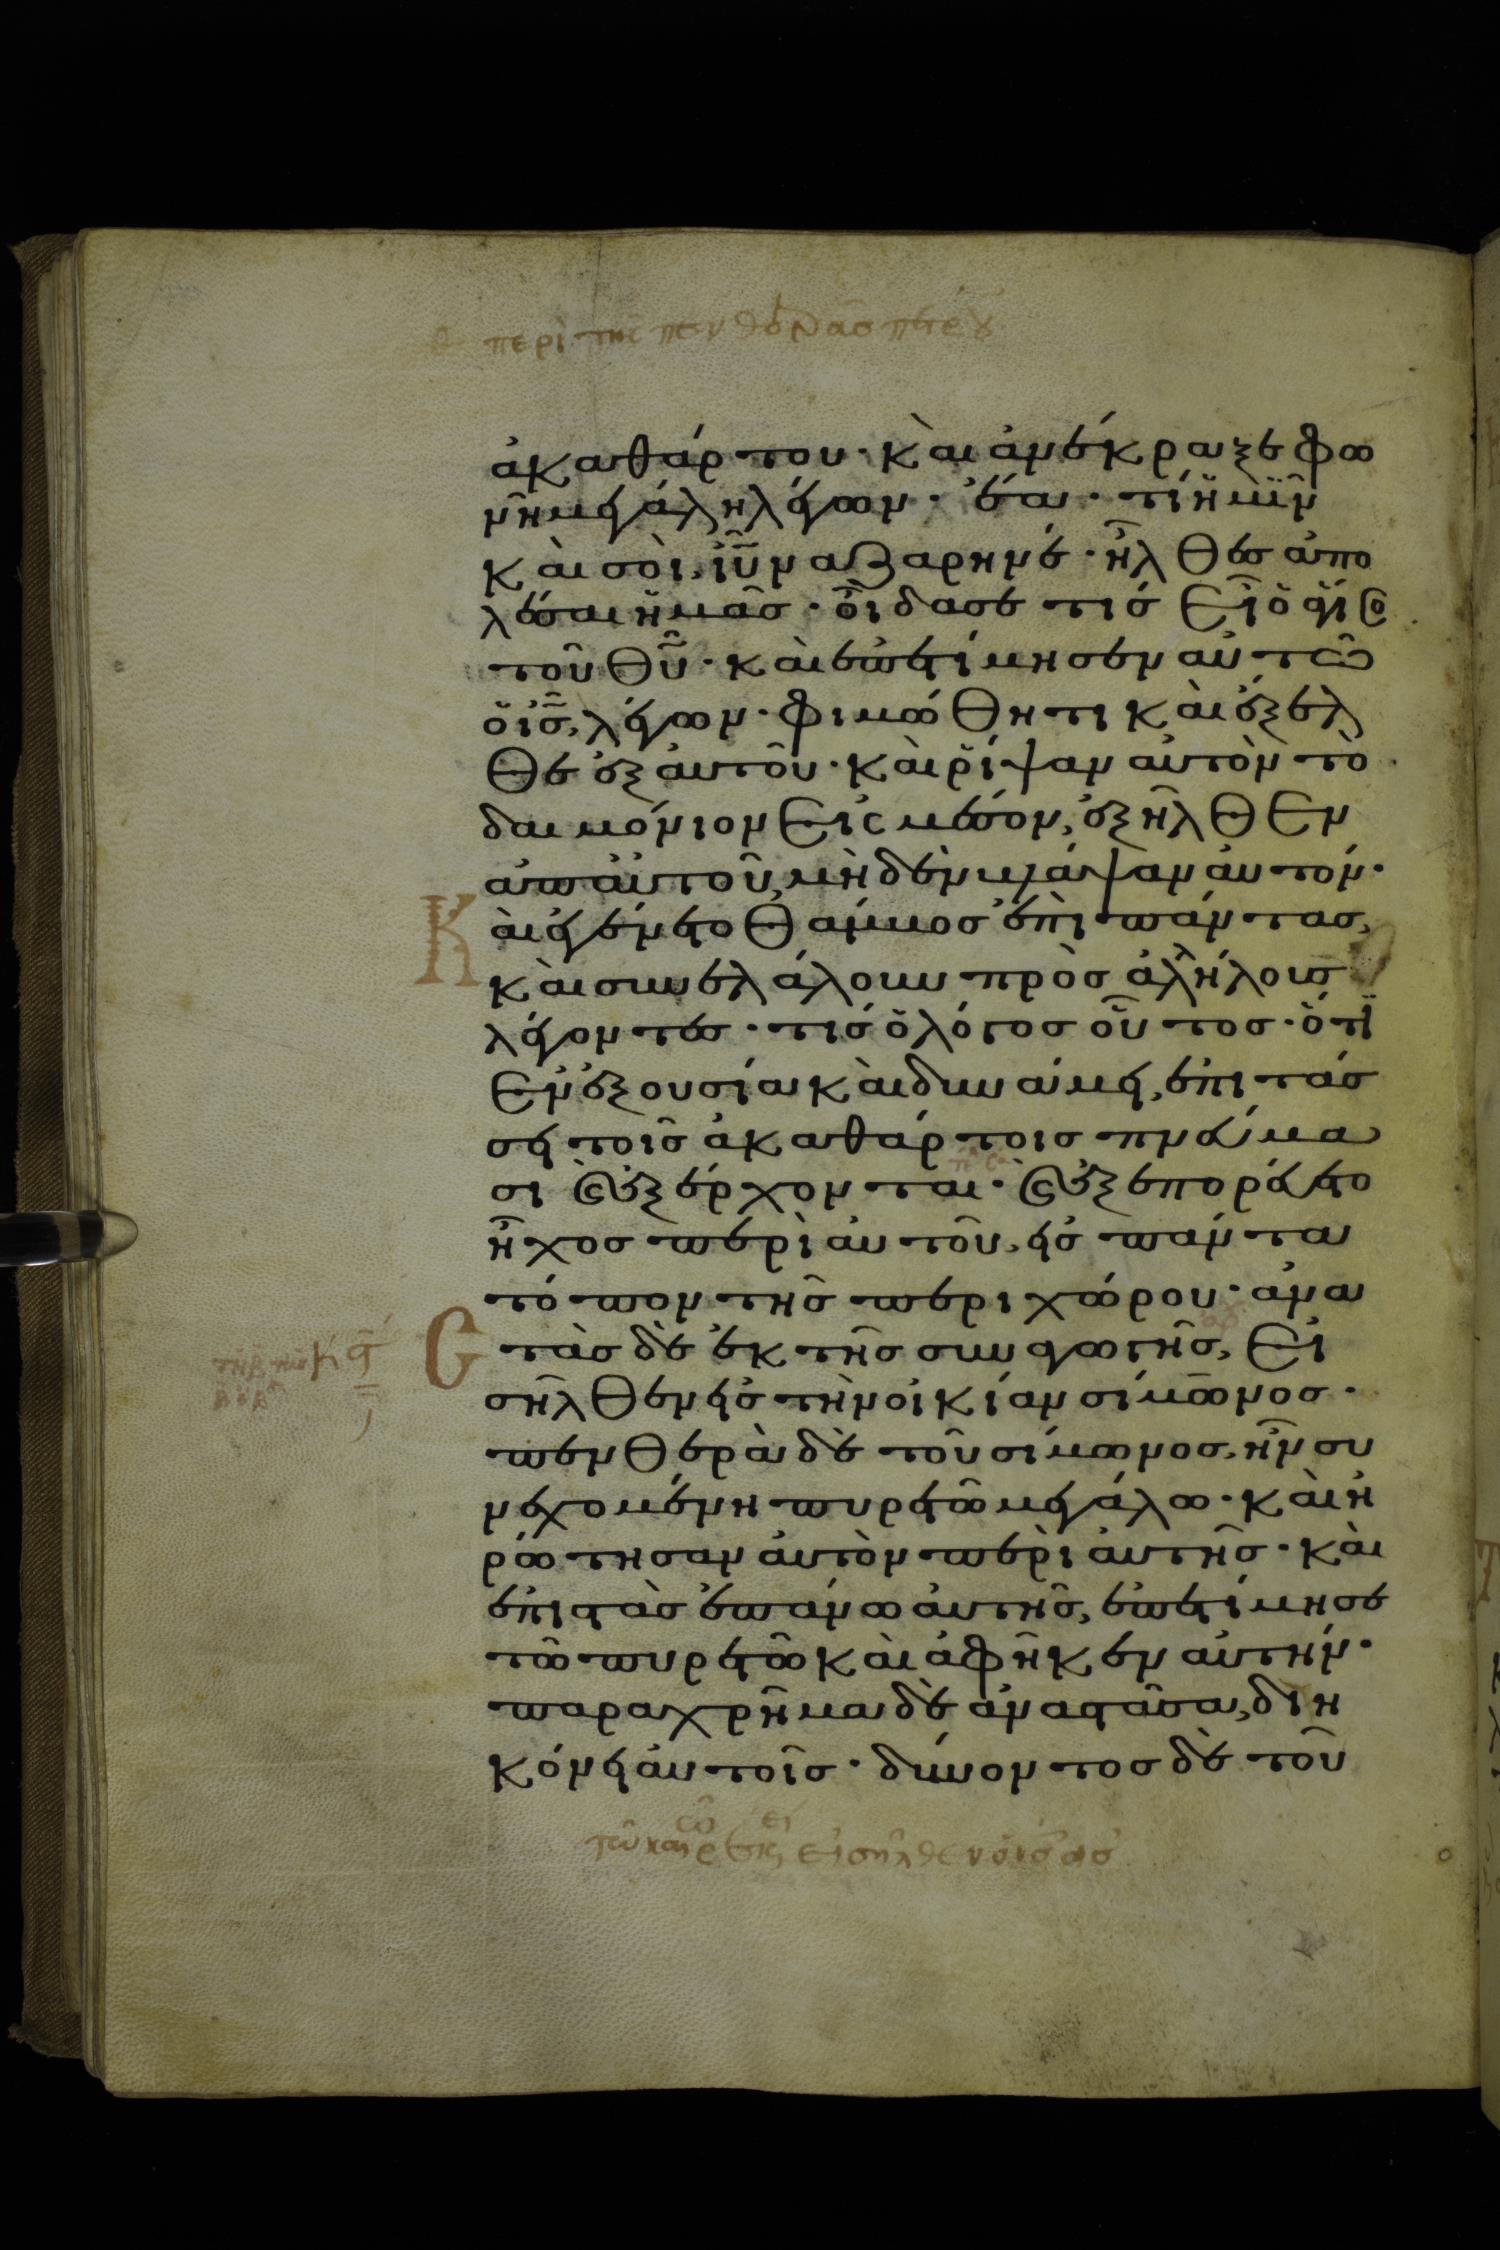 περὶ τῆς πενθερᾶς πέτρου
ἀκαθάρτου· κὰι ἀνέκραξε φω
νῆ μεγάλη λέγων· ἔα· τί ἡμῖν
κὰι σοὶ, ἰῦ ναζαρηνέ· ἦλθες ἀπο
λέσαι ἡμᾶς· οἶδα σε τίς εἶ ὁ ἅγιος
τοῦ θῦ· κὰι ἐπετίμησεν αὐτῶ
ὁ ἰς, λέγων· φιμώθητι κὰι ἔξελ
θε ἐξ ἀυτοῦ· κὰι ῥίψαν ἀυτὸν τὸ
δαιμόνιον εἰς μέσον, ἐξῆλθεν
ἀπ ἀυτοῦ, μὴδὲν βλάψαν ἀυτόν·
Κὰι ἐγένετο θάμβος ἐπὶ πάντας,
κὰι συνελάλουν πρὸς ἀλλήλους
λέγοντες· τίς ὁ λόγος οὗτος· ὅτι
ἐν ἐξουσία κὰι δυνάμει, ἐπιτάσ
σει τοῖς ἀκαθάρτοις πνέυμα
σι ϗ ἐξέρχονται· ϗ ἐξεπορέυετο
ἦχος περὶ ἀυτοῦ, εἰς πάντα
τόπον τῆς περιχώρου· ἀνα
Στὰς δὲ ἐκ τῆς συναγωγῆς, εἰ
σῆλθεν εἰς τὴν οἰκίαν σίμωνος·
πενθερὰ δὲ τοῦ σίμωνος, ἦν συ
νεχομένη πυρετῶ μεγάλω· κὰι ἠ
ρώτησαν ἀυτὸν περὶ ἀυτῆς· κὰι
ἐπιστὰς ἐπάνω ἀυτῆς, ἐπετίμησε
τῶ πυρετῶ κὰι ἀφῆκεν ἀυτήν·
παραχρῆμα δὲ ἀναστᾶσα, διη
κόνει ἀυτοῖς· δύνοντος δὲ τοῦ
εἰσῆλθεν ὁ ἰς εἰς